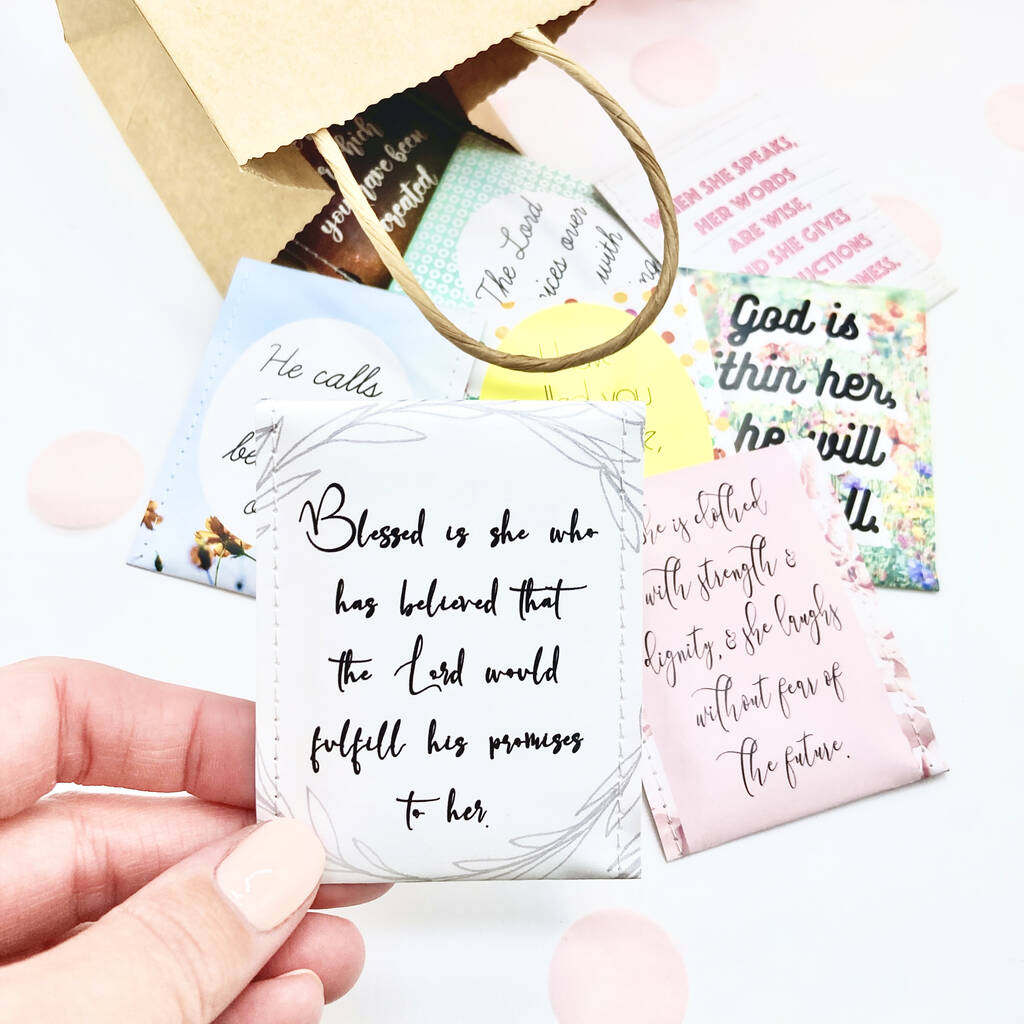 which
you have been
created
The Lord
over
with
WHEN SHE SPEAKS,
HER WORDS
ARE WISE,
SHE GIVES
He calls
God is
her,
he will
you
Blessed is she who
has believed that
the Lord would
fulfill his promises
to her.
is clothed
with strength &
dignity, & she laughs
without fear of
the future.